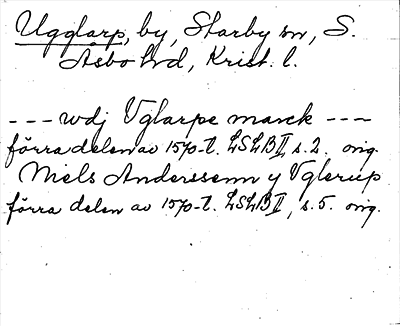 Ugglarp, by, Starby sn, S.
Åsbo hd, Krist. l.
--- wdj Vglarpe marck ---
förra delen av 1570-t. LSLB II, s. 2. orig.
Niels Anderssenn y Vglerup
förra delen av 1570-t. LSLB II, s. 5. orig.